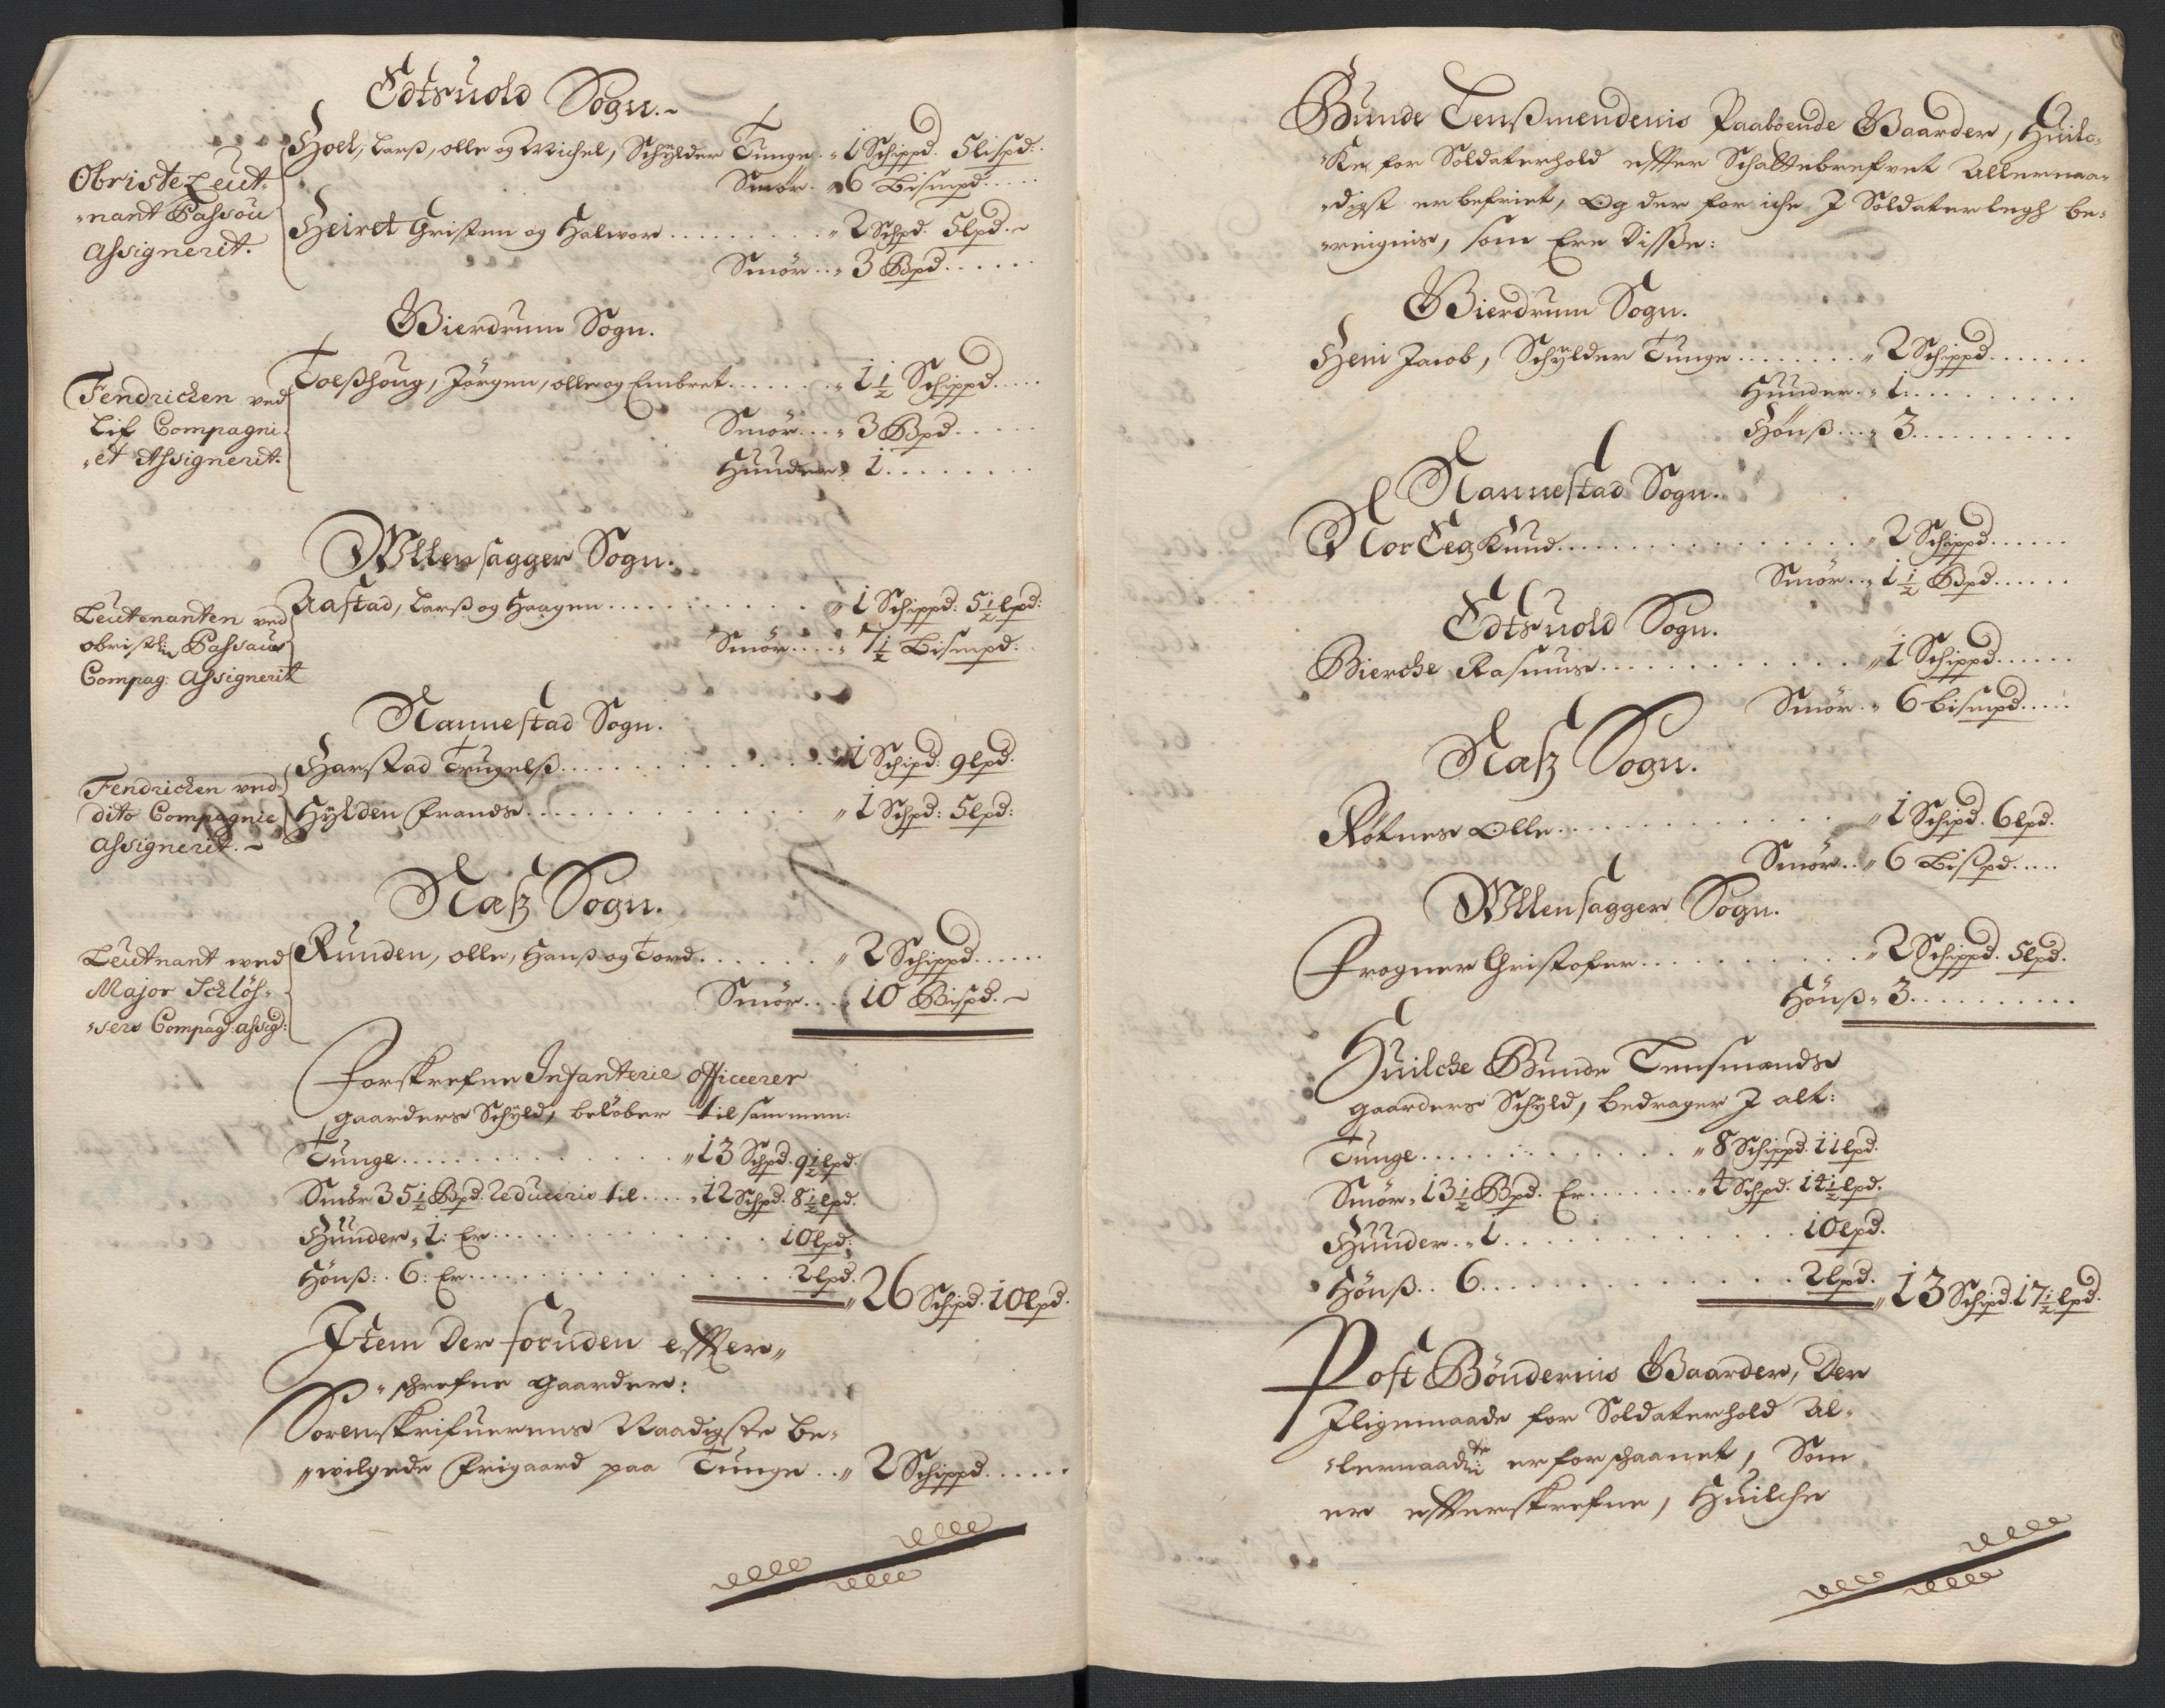 Edtsuold Sogn.
Obriste Leut-
-nant Passou
Assignerit.
Hoel, Larß, olle og Michel, Schylder Tunge. 1 Schippd. 5 lispd.
Smør. 6 Bismpd.
Heiret Christen og Halvor 2 Schpd. 5 lpd.
Smør 3 Bpd.
Gierdrum Sogn.
Fendrichen ved
Lif Compagni-
-et Assignerit.
Toelßhoug, Jørgen, olle og Embret 1½ Schippd.
Smør 3 Bpd.
Huuder 1
Ullensagger Sogn.
Leutenanten ved
obristl: Passaus
Compag: Assignerit
Aastad, Larß og Haagen 1 Schippd: 5½ lpd:
Smør 7½ Bismpd.
Nannestad Sogn.
Fendrichen ved
dito Compagnie
Assignerit.
Harstad Trugelß 1 Schipd: 9 lpd.
Hylden Frands 1 Schpd: 5 lpd:
Næß Sogn.
Leutnant wed
Major Schlös-
-sers Compag: assig:
Runden, olle, Hanß og Tord 2 Schippd.
Smør 10 Bispd.
Forskrefne Infanterie officerer
gaarders Schyld, beløber tilsammen:
Tunge 13 Schpd. 9½ lpd.
Smør 35½ Bpd. Reduceris til 12 Schpd. 8½ lpd.
Huuder, 1: Er 10 lpd:
Hønß: 6: Er 2 lpd.
26 Schipd. 10 lpd.
Item Der foruden effter-
-schrefne gaarder:
Sorenskrifuerens Naadigste be-
-wilgede Frigaard paa Tunge 2 Schippd.
Bunde Lenßmendenis Paaboende Gaarder, Huilc-
-Ke for Soldaterhold effter Schattebrefvet Allernaa-
-digst er befriet, og der for iche J Soldaterlegh be-
-reignis, som Ere Disse:
Gierdrum Sogn.
Heni Jacob, Schylder Tunge 2 Schippd.
Huuder 1
Hønß 3
Nannestad Sogn.
Nor Eeg Knud 2 Schippd.
Smør 1½ Bpd.
Edtsuold Sogn.
Bierche Rasmus 1 Schippd.
Smør 6 bismpd.
Næß Sogn.
Røtnes Olle 1 Schipd. 6 lpd.
Smør 6 Bispd.
Ullensagger Sogn.
Frogner Christofer 2 Schippd. 5 lpd.
Hønß 3
Huilche Bunde Lensmænds
gaarders Schyld, bedrager J alt:
Tunge 8 Schippd. 11 lpd.
Smør, 13½ Bpd. Er 4 Schpd. 14½ lpd.
Huuder 1 10 lpd.
Hønß 6 2 lpd.
13 Schipd. 17½ lpd.
Post Bøndernis Gaarder, Der
Jligemaade for Soldaterhold Al-
-lernaadte er forschaanet, Som
er effterskrefne, Huilche